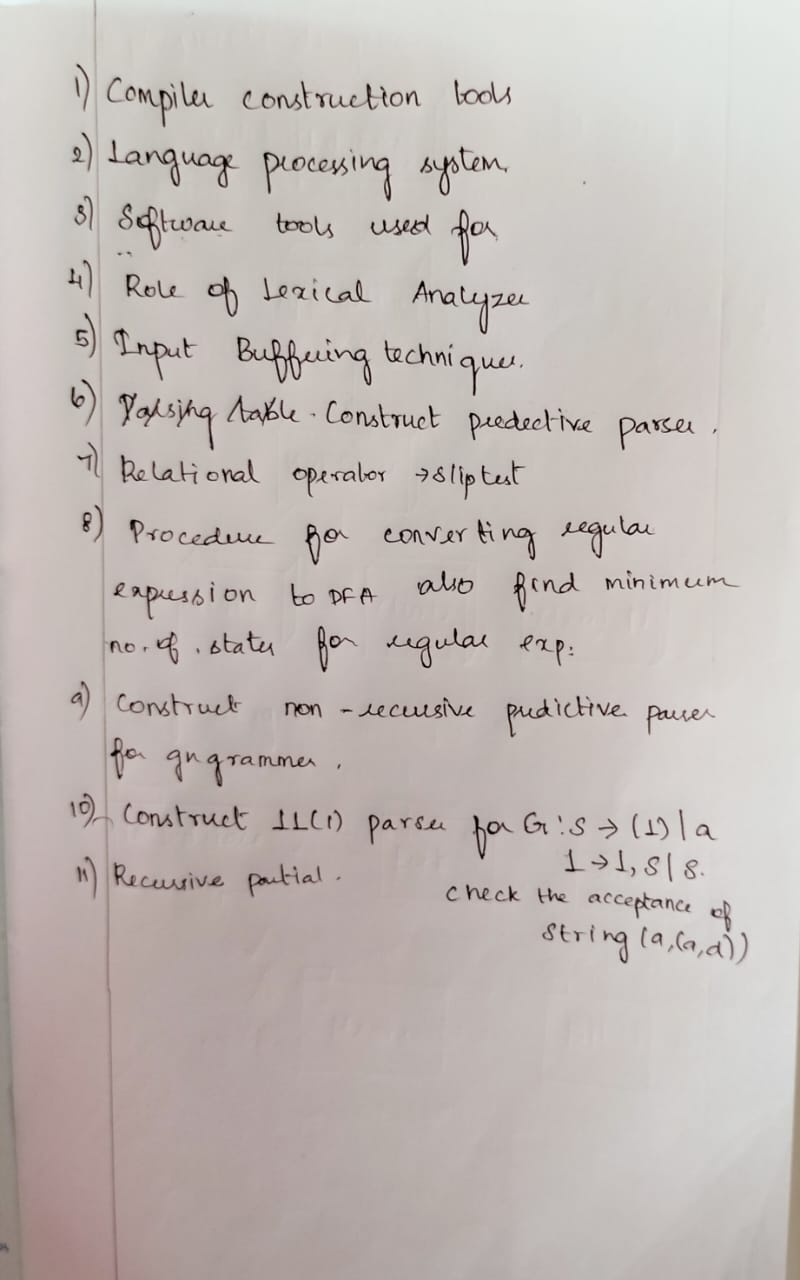 1) Compiler construction tools
2) Language processing system.
3) Software tools used for
4) Role of Lexical Analyzer
5) Input Buffering techniques.
6) Parsing table. Construct predective parser.
7) Relational operator → slip test
8) Procedure for converting regular
expression to DFA also find minimum
no. of. states for regular exp:
9) Construct non-recursive predictive parser
for gn grammer.
10) Construct LL(1) parser for G: S → (L) | a
L → L, S | S.
11) Recursive partial.
check the acceptance of
string (a,(a,d))